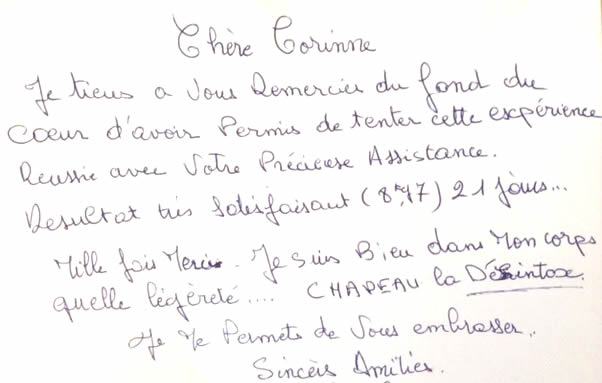 Chère Corinne
Je tiens a vous Remercier du fond du
Coeur d'avoir Permis de tenter cette expérience
Reussie avec Votre Précieuse Assistance.
Resultat très Satisfaisant (8kg,47) 21 jours...
Mille fois Merci. Je suis Bien dans Mon corps
quelle légèreté.... CHAPEAU la Désintox.
Je Me Permets de Vous embrasser..
Sincères Amitiés.